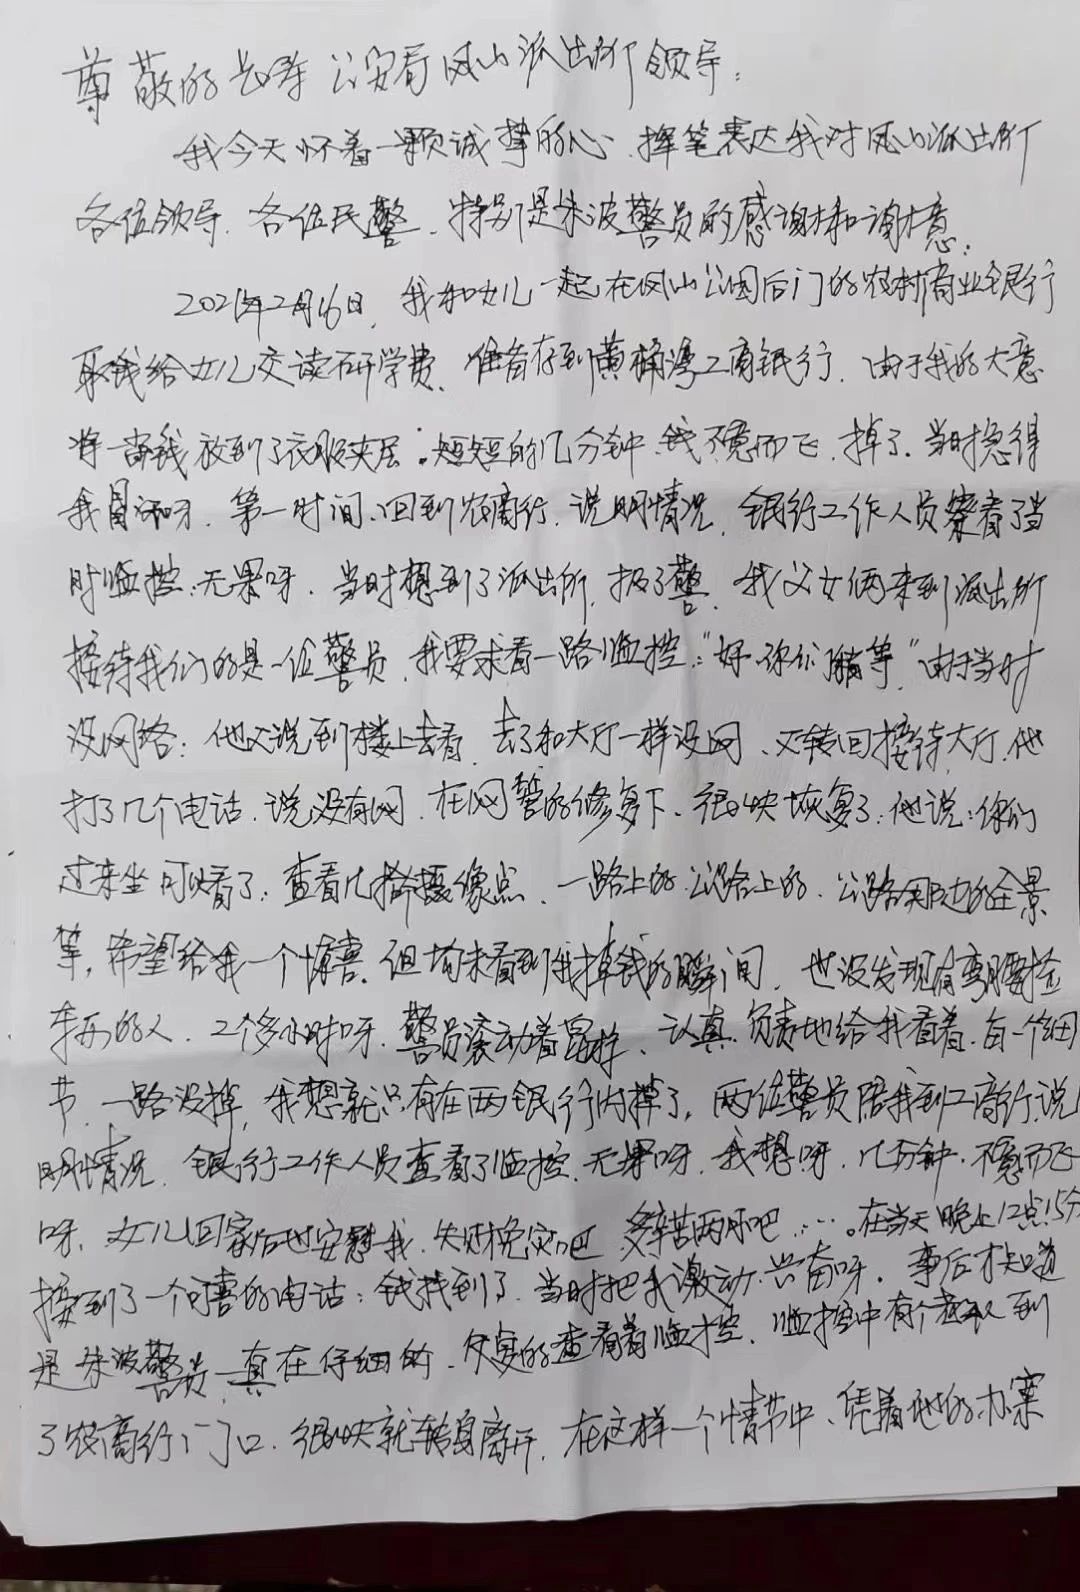 尊敬的长寿公安局凤山派出所领导：
我今天怀着一颗诚挚的心、挥笔表达我对凤山派出所
各位领导、各位民警、特别是朱波警员的感谢和谢意：
2021年2月16日，我和女儿一起在凤山公园后门的农村商业银行
取钱给女儿交读研学费、准备存到黄桷湾工商银行、由于我的大意
将一 钱放到了衣服夹层。短短的几分钟、钱不意而飞、掉了、当时急得
我冒汗呀、第一时间、回到农商行、说明情况、银行工作人员察看了当
时临控：无果呀、当时想到了派出所、报了警、我父女俩来到派出所
接待我们的是一位警员、我要求看一路临控："好、你们稍等"由于当时
没网络：他又说到楼上去看、去了和大厅一样没网、又转回接待大厅、他
打了几个电话、说没有网、在网警的修复下、很快恢复了：他说：你们
过来坐可以看了：查看几 摄像点、一路上的、公路上的、公路 边的全景
等，希望给我一个惊喜、但均未看到我掉钱的瞬间、也没发现有弯腰捡
东西的人、2个多小时呀、警员滚动着鼠标、认真、负责地给我看着、每一个细
节、一路没掉、我想就只有在两银行内掉了、两位警员陪我到工商行、说
明情况、银行工作人员查看了临控、无果呀、我想呀、几分钟、不意而飞
呀、女儿回家后也安慰我、失财免灾吧、多辛苦两月吧……。在当天晚上12点15分
接到了一个可喜的电话：钱找到了、当时把我激动、兴奋呀、事后才知道
是朱波警员一真在仔细的、反复的查看着临控、临控中有个 到
了农商行门口、很快就转身离开、在这样一个情节中、凭着他的办案